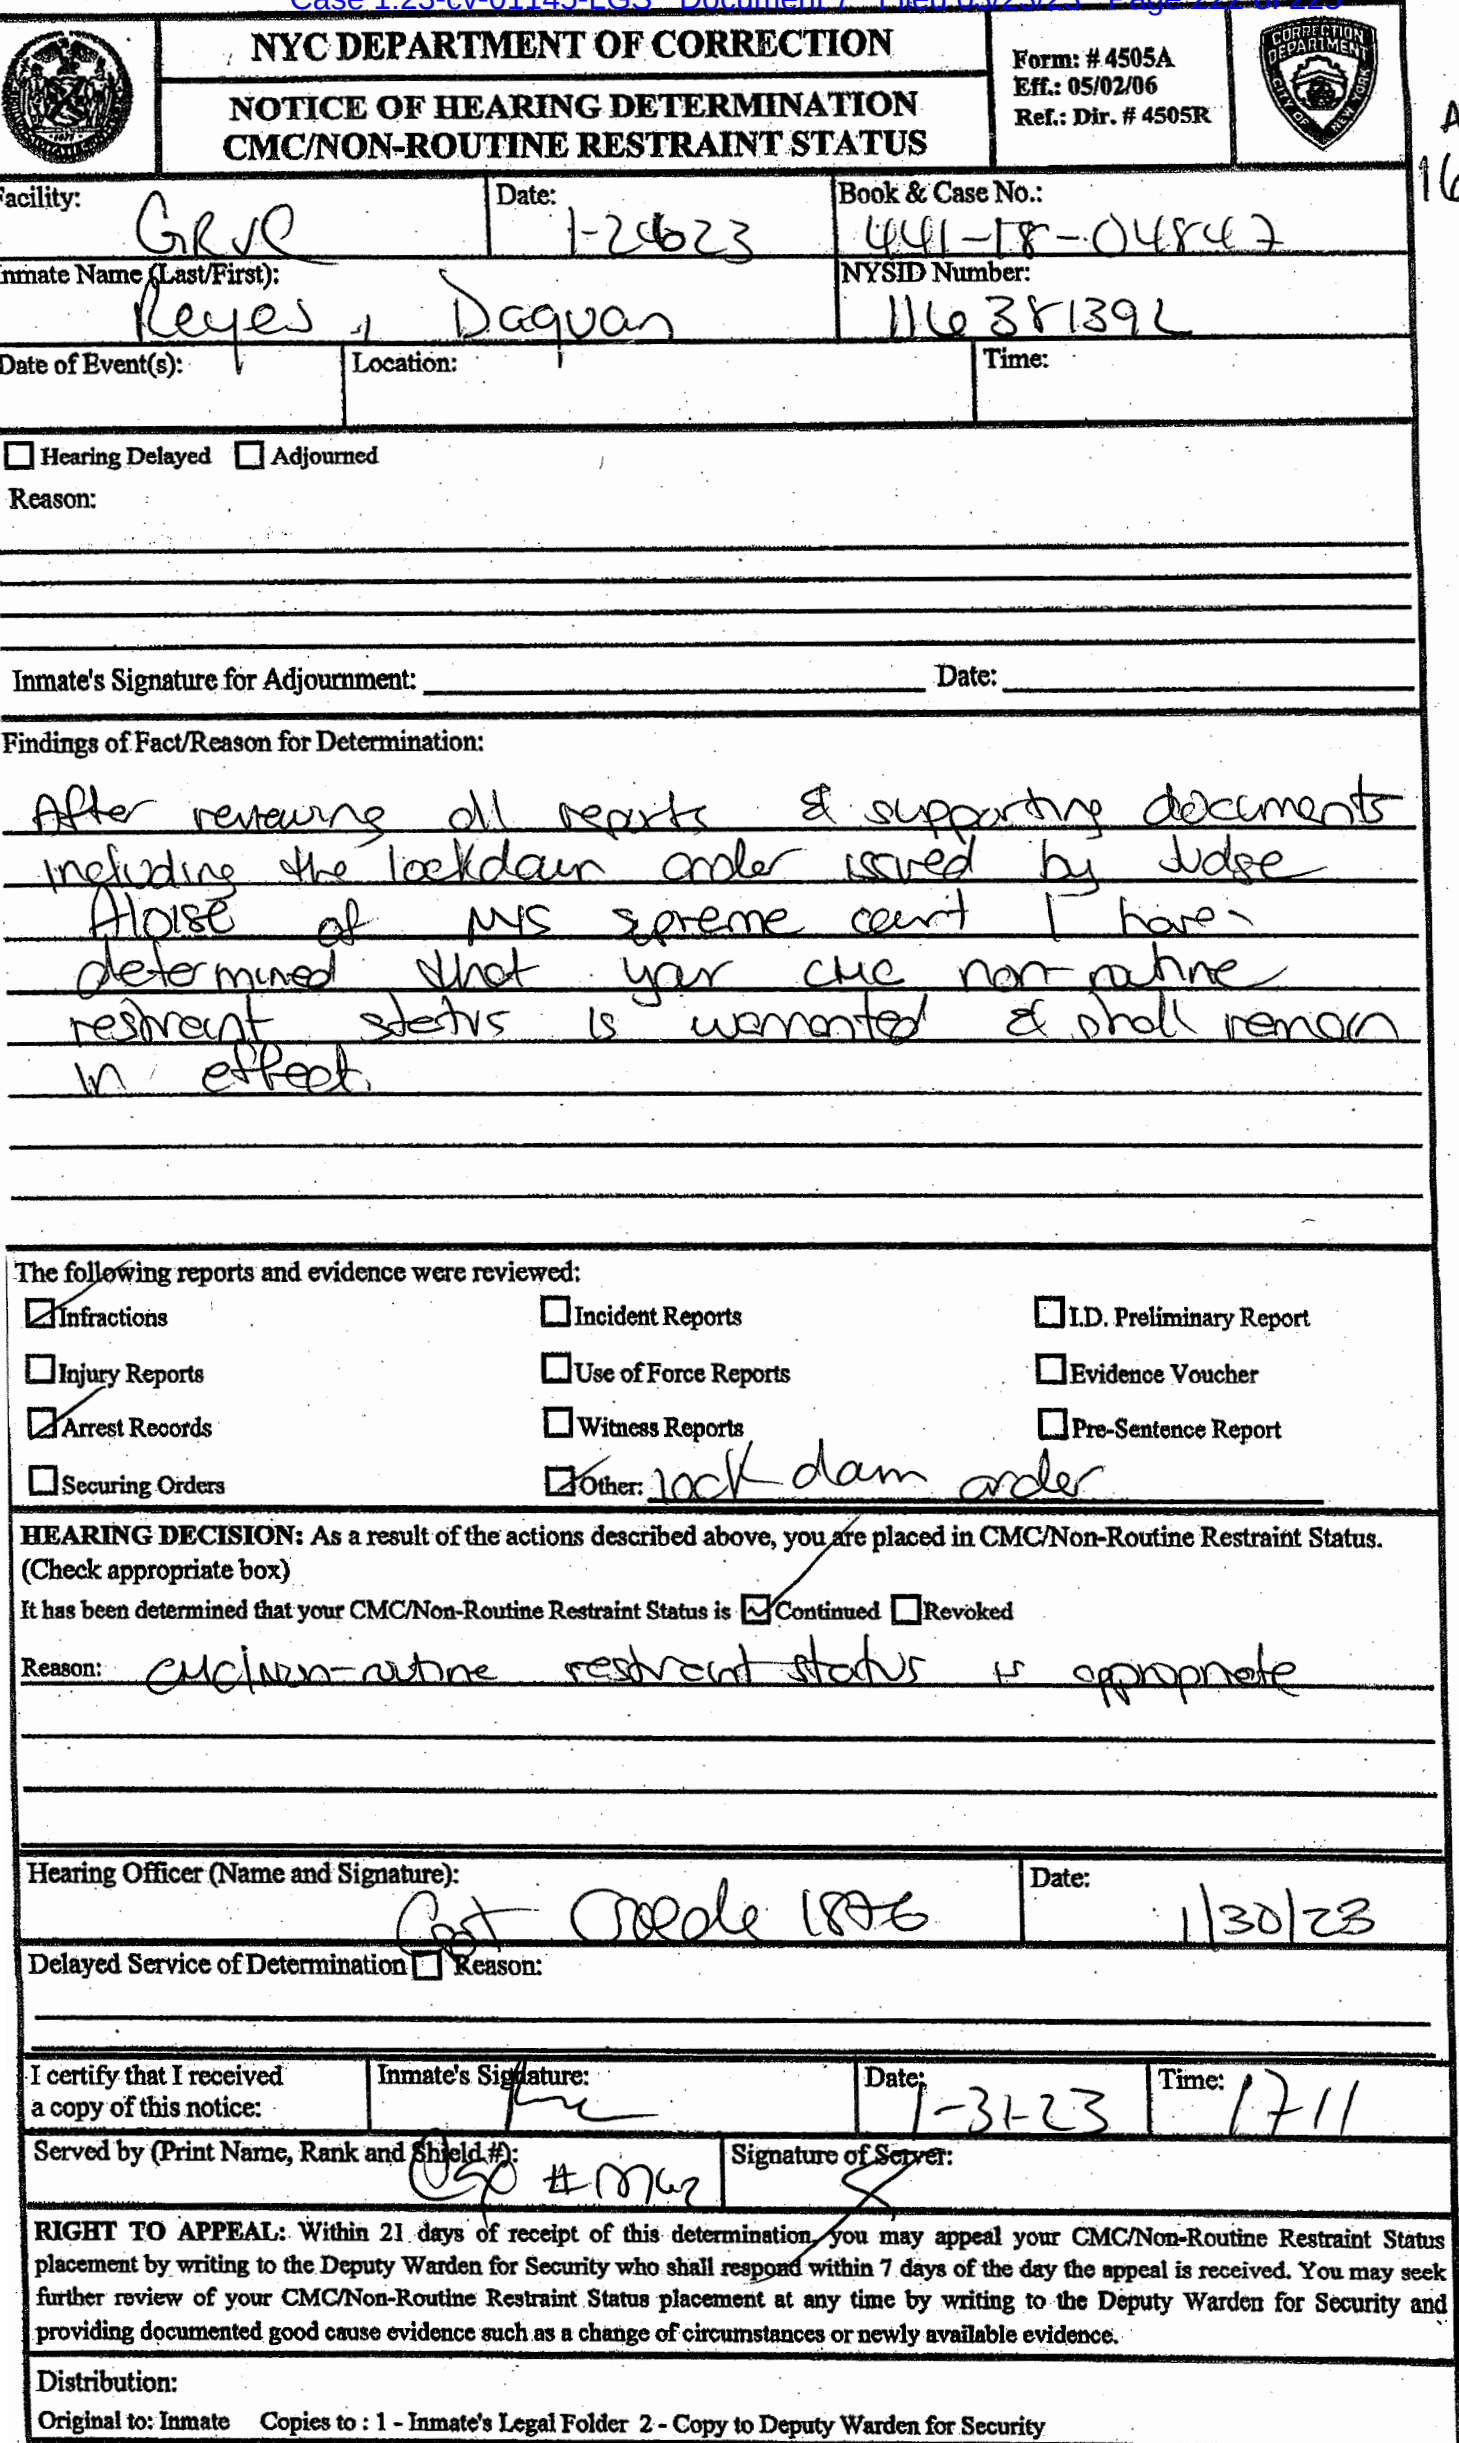 Case 1:23-cv-01145-LGS Document 7 Filed 03/23/23 Page 222 of 225
NYC DEPARTMENT OF CORRECTION
NOTICE OF HEARING DETERMINATION
CMC/NON-ROUTINE RESTRAINT STATUS
Form: # 4505A
Eff.: 05/02/06
Ref.: Dir. # 4505R
CORRECTION
DEPARTMENT
CITY OF NEW YORK
A
16
Facility: GRVC Date: Book & Case No.: 441-18-04847
Inmate Name (Last/First): Reyes, Daquan NYSID Number:
Date of Event(s): Location: Time:
Hearing Delayed Adjourned
Reason:
Inmate's Signature for Adjournment: Date:
Findings of Fact/Reason for Determination:
After reviewing all reports & supporting documents
including the lockdown order issued by Judge
Aloise of NYS spreme court I have
determined that your CMC non-routine
restraint status is warranted & shall remain
in effect.
The following reports and evidence were reviewed:
Infractions Incident Reports I.D. Preliminary Report
Injury Reports Use of Force Reports Evidence Voucher
Arrest Records Witness Reports Pre-Sentence Report
Securing Orders Other: lock down order
HEARING DECISION: As a result of the actions described above, you are placed in CMC/Non-Routine Restraint Status.
(Check appropriate box)
It has been determined that your CMC/Non-Routine Restraint Status is Continued Revoked
Reason: CMC/Non-routine restraint status is appropriate
Hearing Officer (Name and Signature): Capt Date: 1/30/23
Delayed Service of Determination Reason:
I certify that I received
a copy of this notice:
Inmate's Signature: Date: 1-31-23 Time: 1711
Served by (Print Name, Rank and Shield #): Signature of Server:
RIGHT TO APPEAL: Within 21 days of receipt of this determination, you may appeal your CMC/Non-Routine Restraint Status
placement by writing to the Deputy Warden for Security who shall respond within 7 days of the day the appeal is received. You may seek
further review of your CMC/Non-Routine Restraint Status placement at any time by writing to the Deputy Warden for Security and
providing documented good cause evidence such as a change of circumstances or newly available evidence.
Distribution:
Original to: Inmate Copies to : 1 - Inmate's Legal Folder 2 - Copy to Deputy Warden for Security